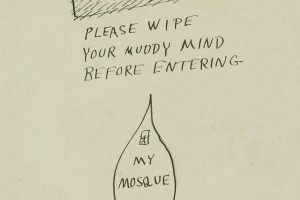 PLEASE WIPE
YOUR MUDDY MIND
BEFORE ENTERING
MY
MOSQUE